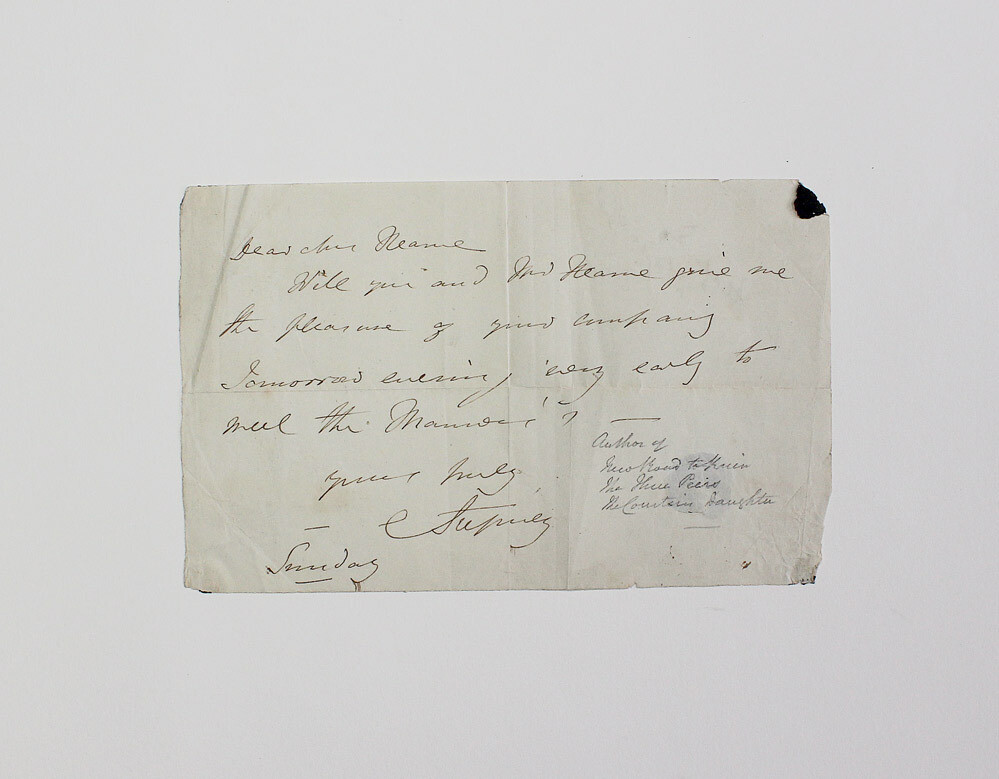 Dear Mr Hearne
Will you and Mrs Hearne give me
the pleasure of your company
Tomorrow evening, very early to
meet the
yours truly
C Stepney
Sunday
Author of
New Road to Ruin
The Three Peers
The Courtier's Daughter